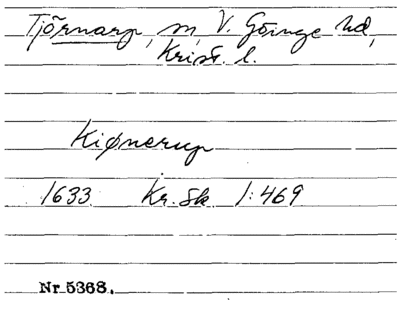 Tjörnarp, sn, V. Göinge hd,
Krist. l.
Kiønerup
1633 Kr. Sk 1:469
Nr 5368.